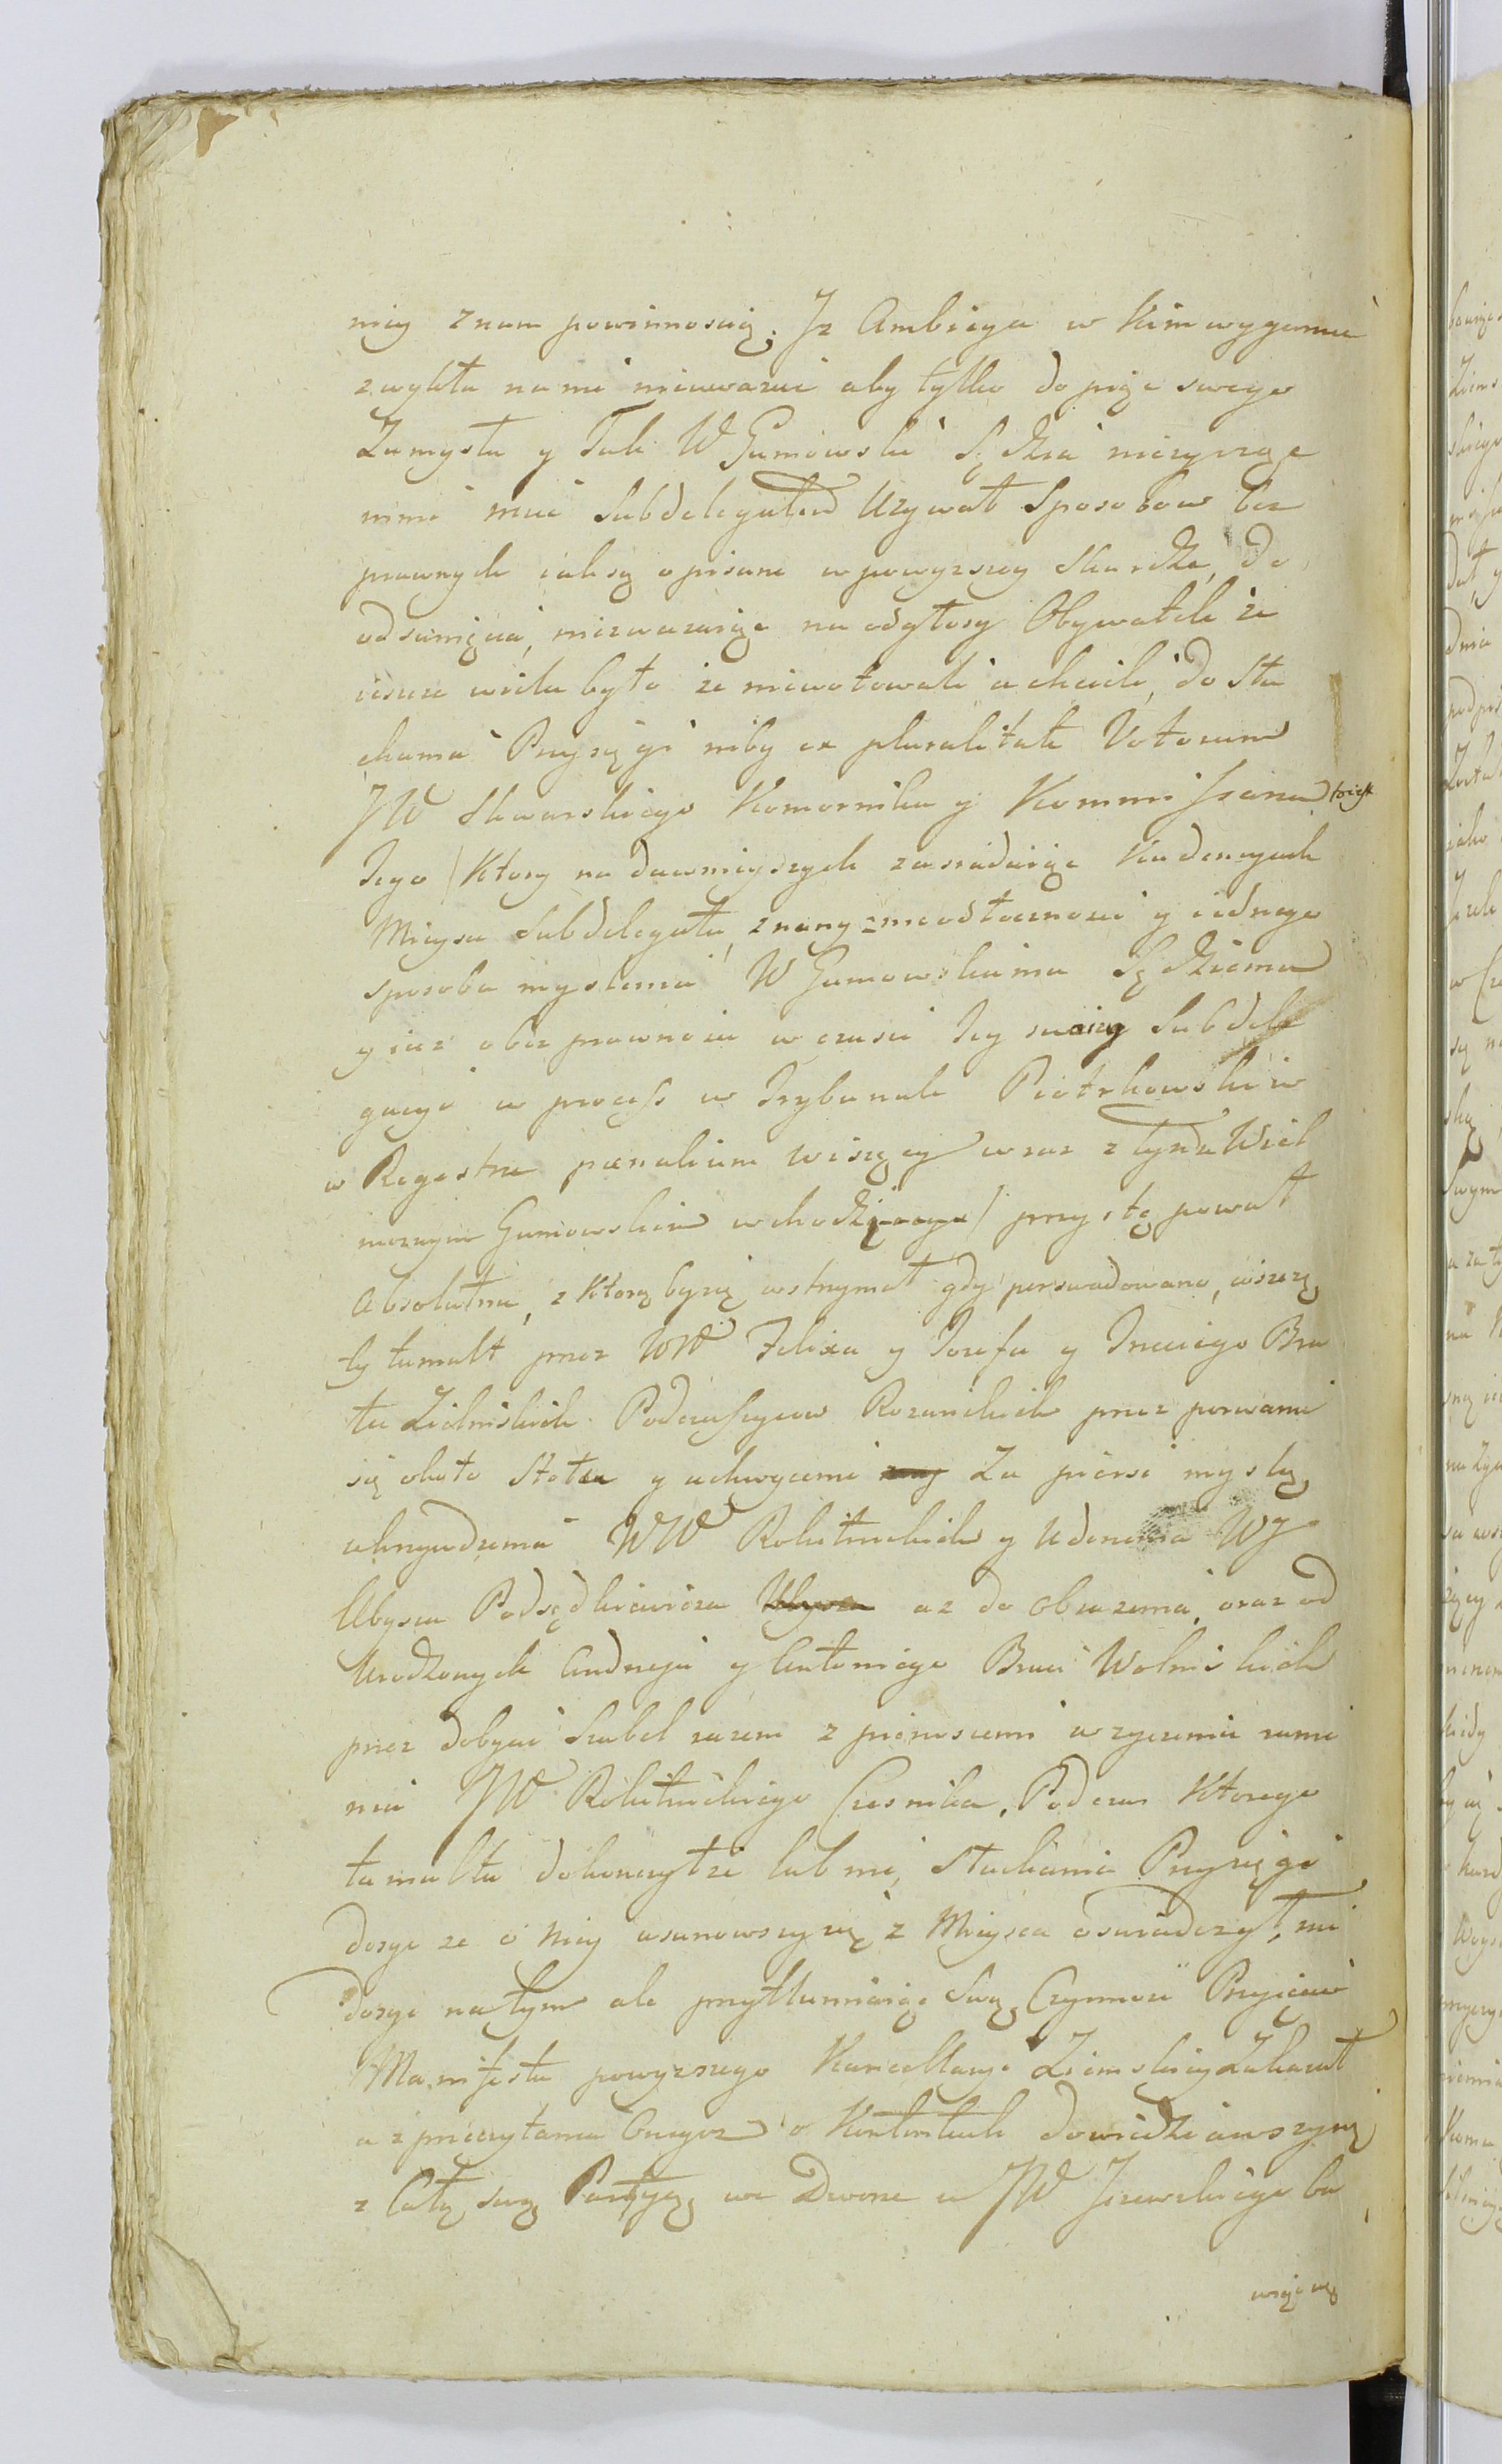 niey znam powinnością. Iz Ambicya w Kim wygurnie
zwykła na nic nieuwazać aby tylko dopiąc swego
Zamysłu y Tak W Gumowski Sędzia nieżycząc
mnie mieć Subdelegatem Uzywał Sposobow bez
prawnych iak są opisane w powyzszey Skardze, do
odsunięcia, niezwazaiąc na odgłosy Obywateli że
ieszcze wielu było że niewotowali a chcieli, do słu
chania Przysięgi niby ex pluralitate Votorum
JW Skwarskiego Komornika y Kommissarza
Jego / Ktory na dawnieyszych zasiadaiąc Kadencyach
Mieysce Subdelegata, znany z nieodłacznosci y iednego
sposobu myslenia W Gumowskiemu Sędziemu
y iuż o bez prawnosci w czasie tey swoiey Subdele
gacyi w process w Trybunale Piotrkowskim
w Regestrze pœnalium wiszący wraz z tymze Wiel
moznym Gumowskim wchodzącego / przystępował
Absolutnie, z Ktorą by się wstrzymał gdy perswadowano, wszczę
ty tumult przez WW Felixa y Jozefa y Trzeciego Bra
ta Zielinskich Podczaszycow Rozanskich przez porwanie
się około Stołu y uchwycenie Za piersi myslą
ukrzywdzenia WW Rokitnickich y Uderzenia WJ
Ubysza Podsędkiewicza az do obrazenia, oraz od
Urodzonych Andrzeja y Antoniego Braci Wolinskich
przez dobycie Szabel razem z przeniesieniem w życzeniu rani
nia JW Rokitnickiego Czesnika. Podczas Ktorego
tumultu dokonczył że lub nie, słuchania Przysięgi
dosyc ze o niey usunowszy się z Mieysca oswiadczył, nie
dosyc natym ale przytłumiaiąc Swą Czynnosc Przyięcia
Manifestu powyzszego Kancellaryi Ziemskiey Zakazał
a z przeczytania Onegoz o Kontentach dowiedziawszy się
z Całą swą Partyą we Dworze u JW Jzewskiego ba
wiącą